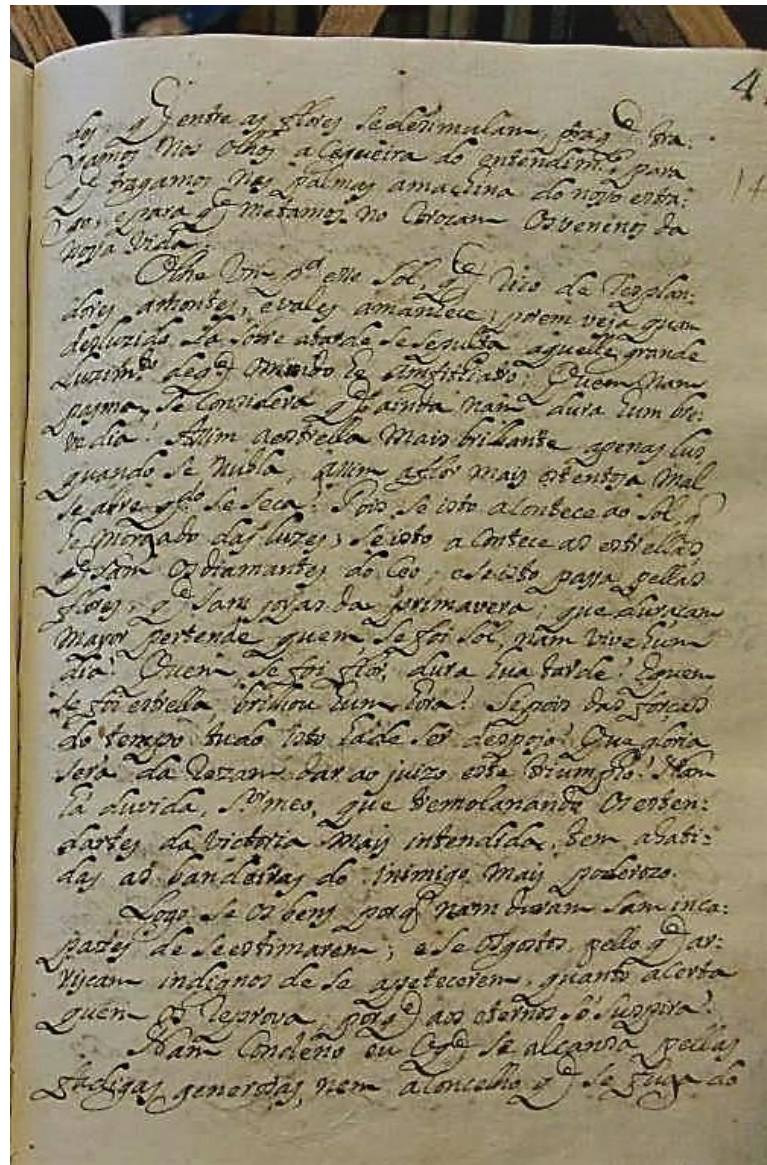 4
14
des, q entre as flores se desimulam, praq tra:
gamos nos olhos a cegueira do entendim.to, para
q tragamos nas palmas amachina do nosso estra:
go, e para q metamos no Corozam os venenos da
nossa vida.
Olhe Vm p.a esse Sol, q Rico de Resplan:
dores amontes, e vales amanhece; porem veja quam
desluzido, la sobre atarde se sepulta aquelle grande
Luzim.to de q o mundo he amfitiatro: Quem nam
pasma, se Considera q ainda nam dura hum bre:
ve dia! Assim aestrella Mais brilhante apenas lus,
quando se nubla, assim aflor mais ostentoza Mal
se abre q.do se seca! Pois se isto acontece ao Sol, q
he morgado das luzes, se isto acontece as estrellas,
q sam os diamantes do Ceo; e se isto passa pellas
flores, q sam joyas da primavera; que duraçam
mayor pertende quem, se foi Sol, nam vive hum
dia! Quem, se foi flor, dura hua tarde! E quem
se foi estrella brilhou hum hora! Se pois das forças
do tempo tudo isto hade ser despojo! Que gloria
será da Rezam dar ao juizo este triumpho! Nam
ha duvida, S.or meo, que tremolanando os esten:
dartes da Victoria Mais intendida, tem abati:
das as bandeiras do inimigo Mais poderozo.
Logo se os bens porq nam duram sam inca:
pazes de se estimarem; e se os gostos, pello q ar:
riscam indignos de se apetecerem, quanto acerta
quem os Reprova, porq aos eternos só suspira!
Nam Condeno eu o q se alcansa pellas
fadigas generozas, nem aconcelho q se fuga do